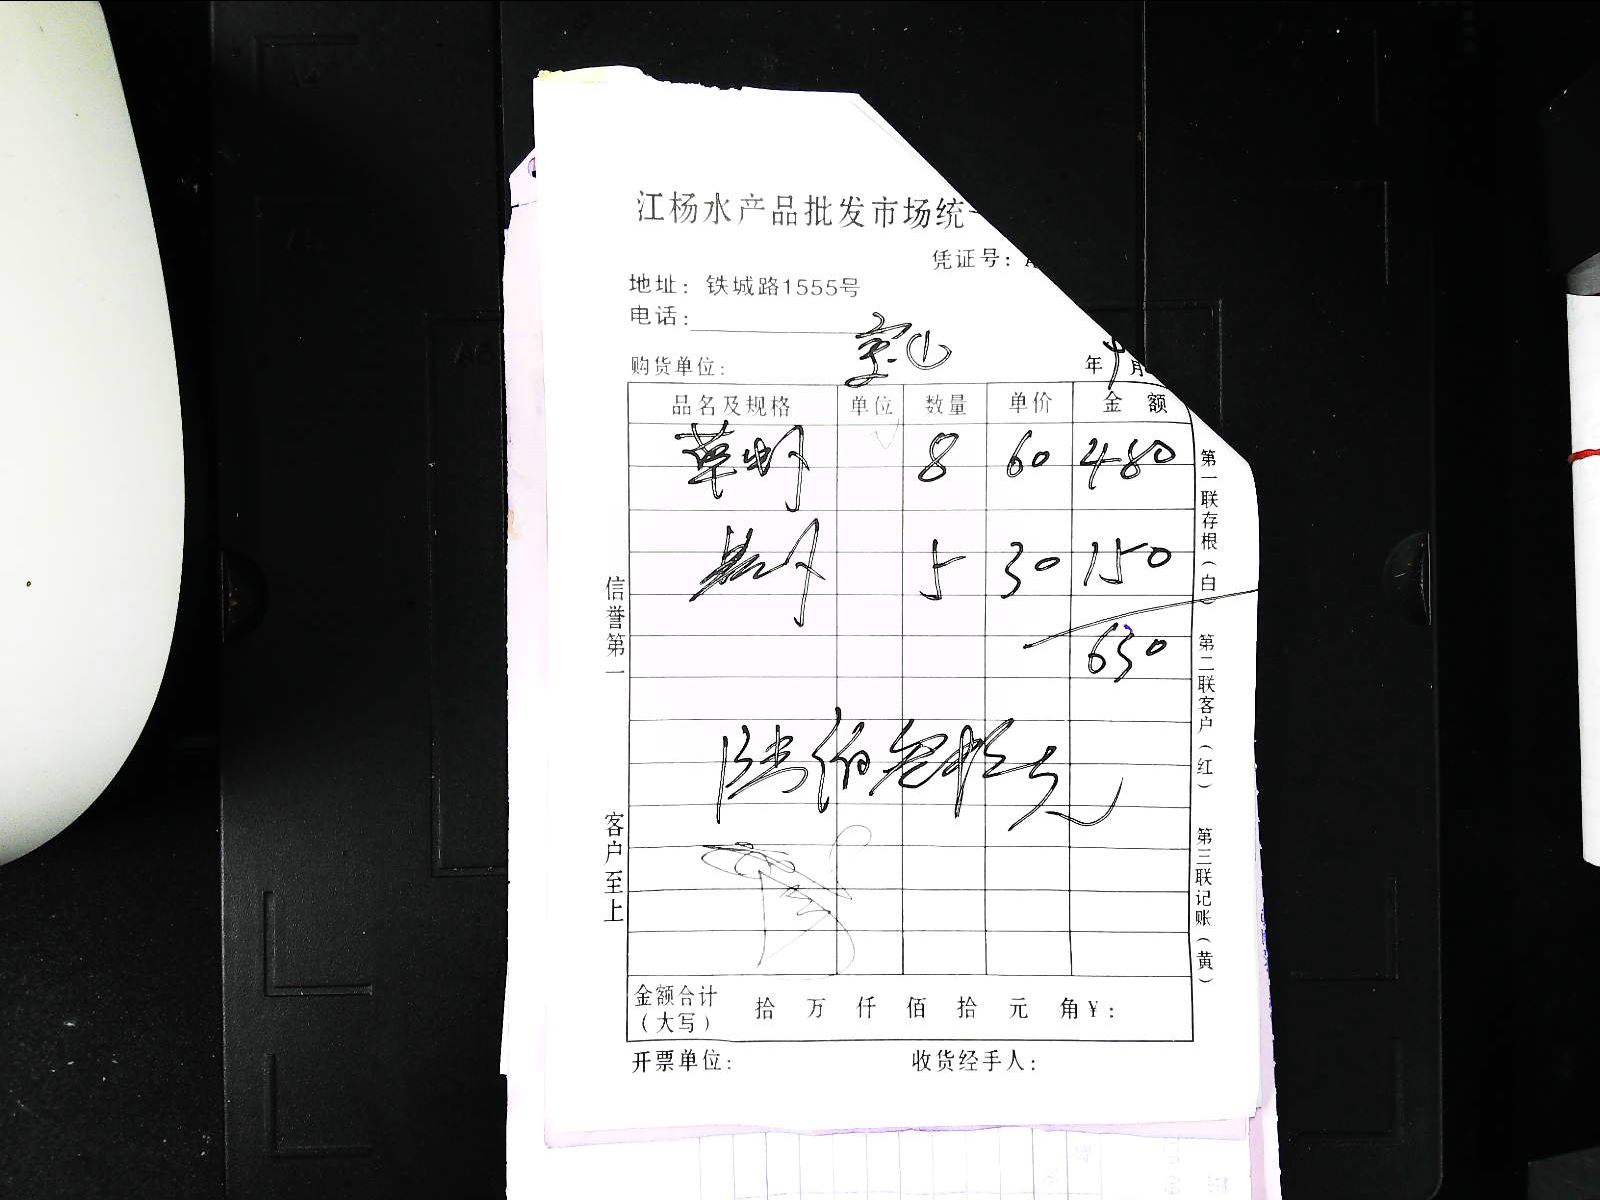 江杨水产品批发市场统一
凭证号:
地址: 铁城路1555号
电话:
宝山
购货单位:
年 9 月
品名及规格 单位 数量 单价 金 额
草虾 8 60 480
5 30 150
630
陆佰叁拾元
金额合计 (大写) 拾 万 仟 佰 拾 元 角 ¥:
开票单位: 收货经手人:
信誉第一
客户至上
第一联存根(白) 第二联客户(红) 第三联记账(黄)